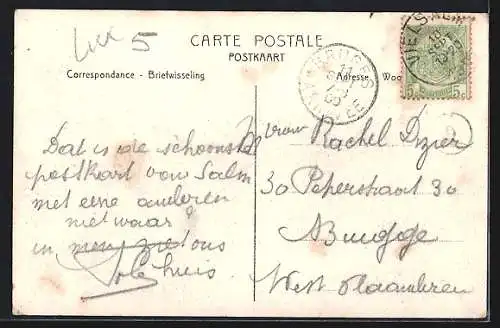 5
CARTE POSTALE
POSTKAART
Correspondance - Briefwisseling
Adresse - Woo
VIELSALM
BRUGES
11
5c 5c
Dat is de schoonste
postkart van Salm
met eene anderen
niet waar?
in ons
huis
Rachel Dizier
30 Peperstraat 30
Brugge
West Vlaanderen